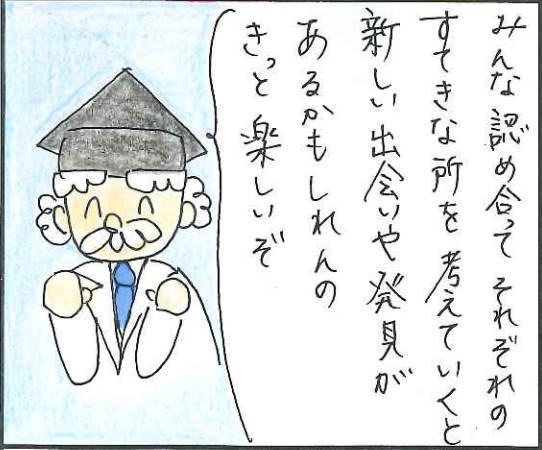 みんな認め合って それぞれの
すてきな所を 考えていくと
新しい出会いや発見が
あるかもしれんの
きっと楽しいぞ